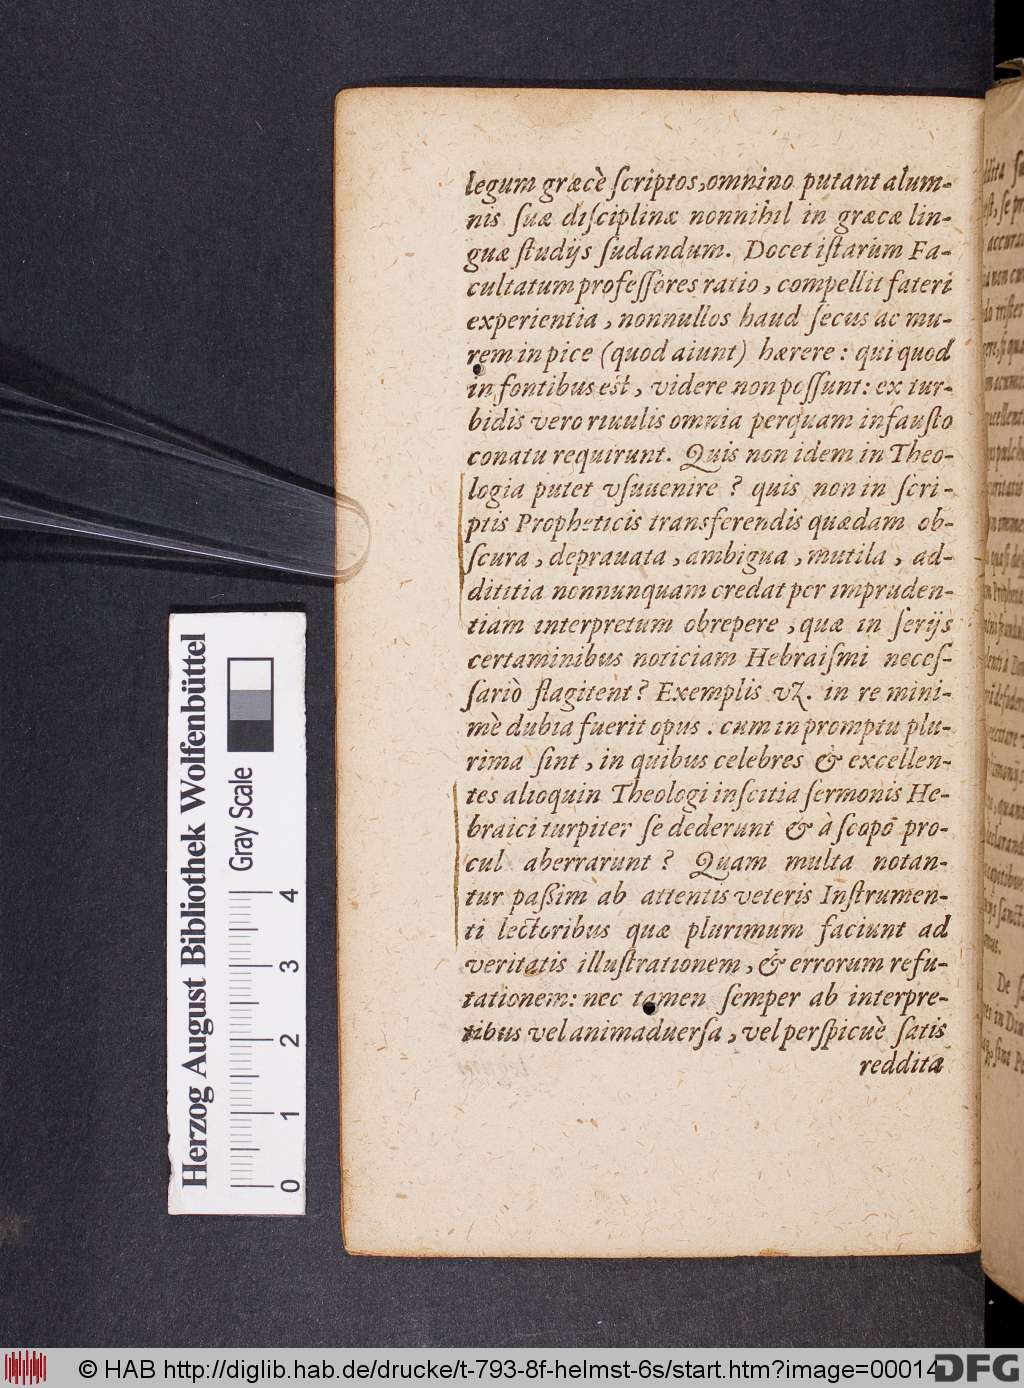 legum græcè ſcriptos, omnino putant alum-
nis ſuæ diſciplinæ nonnihil in græcæ lin-
guæ ſtudijs ſudandum. Docet iſtarum Fa-
cultatum profeſſores ratio, compellit fateri
experientia, nonnullos haud ſecus ac mu-
rem in pice (quod aiunt) hærere: qui quod
in fontibus est, videre non poſſunt: ex tur-
bidis vero riuulis omnia perquam infauſto
conatu requirunt. Quis non idem in Theo-
logia putet vſuuenire? quis non in ſcri-
ptis Propheticis transferendis quædam ob-
ſcura, deprauata, ambigua, mutila, ad-
dititia nonnunquam credat per impruden-
tiam interpretum obrepere, quæ in ſerijs
certaminibus noticiam Hebraiſmi neceſ-
ſariò flagitent? Exemplis vz. in re mini-
mè dubia fuerit opus. cum in promptu plu-
rima ſint, in quibus celebres & excellen-
tes alioquin Theologi inſcitia ſermonis He-
braici turpiter ſe dederunt & à ſcopō pro-
cul aberrarunt? Quam multa notan-
tur paſſim ab attentis veteris Inſtrumen-
ti lectoribus quæ plurimum faciunt ad
veritatis illuſtrationem, & errorum refu-
tationem: nec tamen ſemper ab interpre-
tibus vel animaduerſa, vel perſpicuè ſatis
reddita
Herzog August Bibliothek Wolfenbüttel
Gray Scale
0 1 2 3 4
© HAB http://diglib.hab.de/drucke/t-793-8f-helmst-6s/start.htm?image=00014
DFG